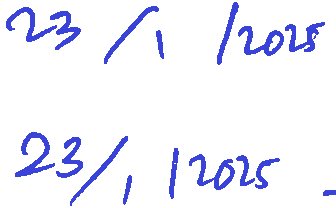 23/1/2025
23/1/2025